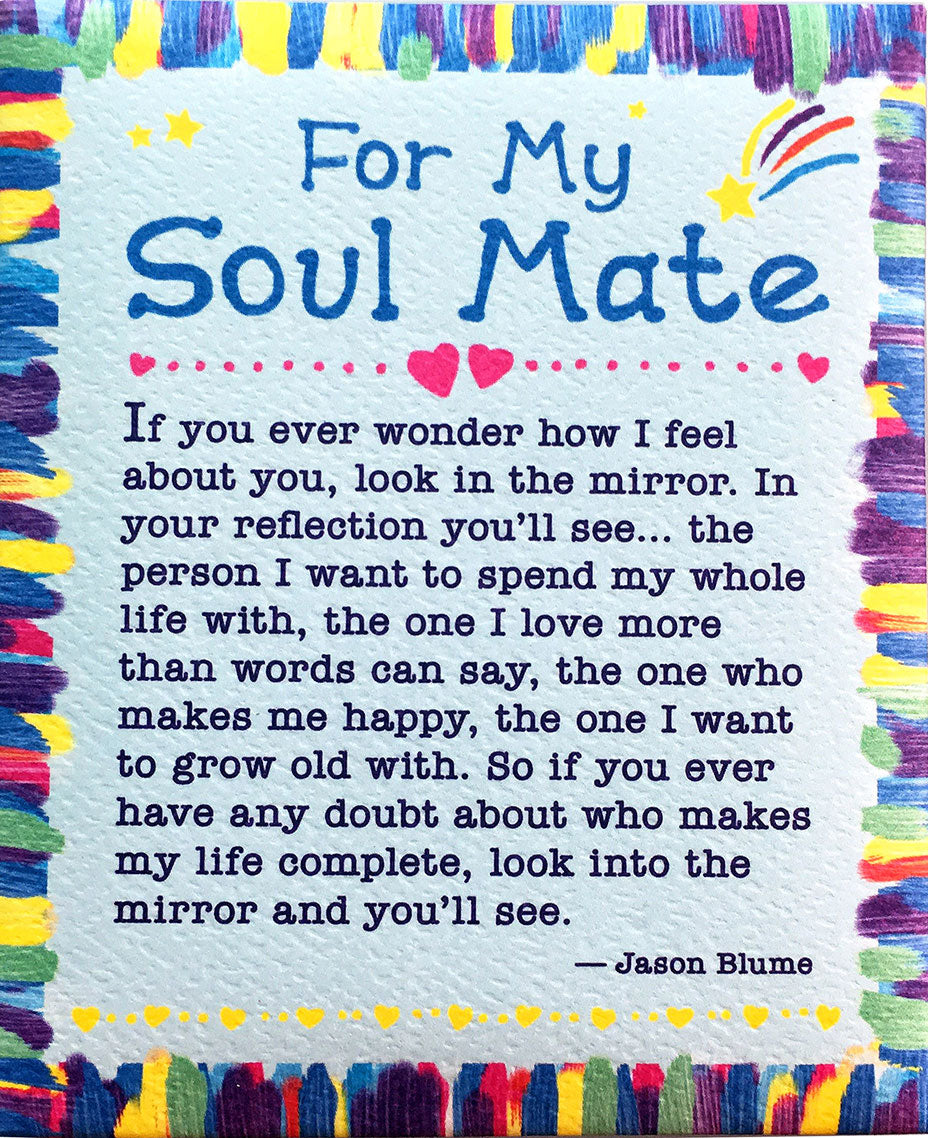 For My
Soul Mate
If you ever wonder how I feel
about you, look in the mirror. In
your reflection you'll see... the
person I want to spend my whole
life with, the one I love more
than words can say, the one who
makes me happy, the one I want
to grow old with. So if you ever
have any doubt about who makes
my life complete, look into the
mirror and you'll see.
— Jason Blume